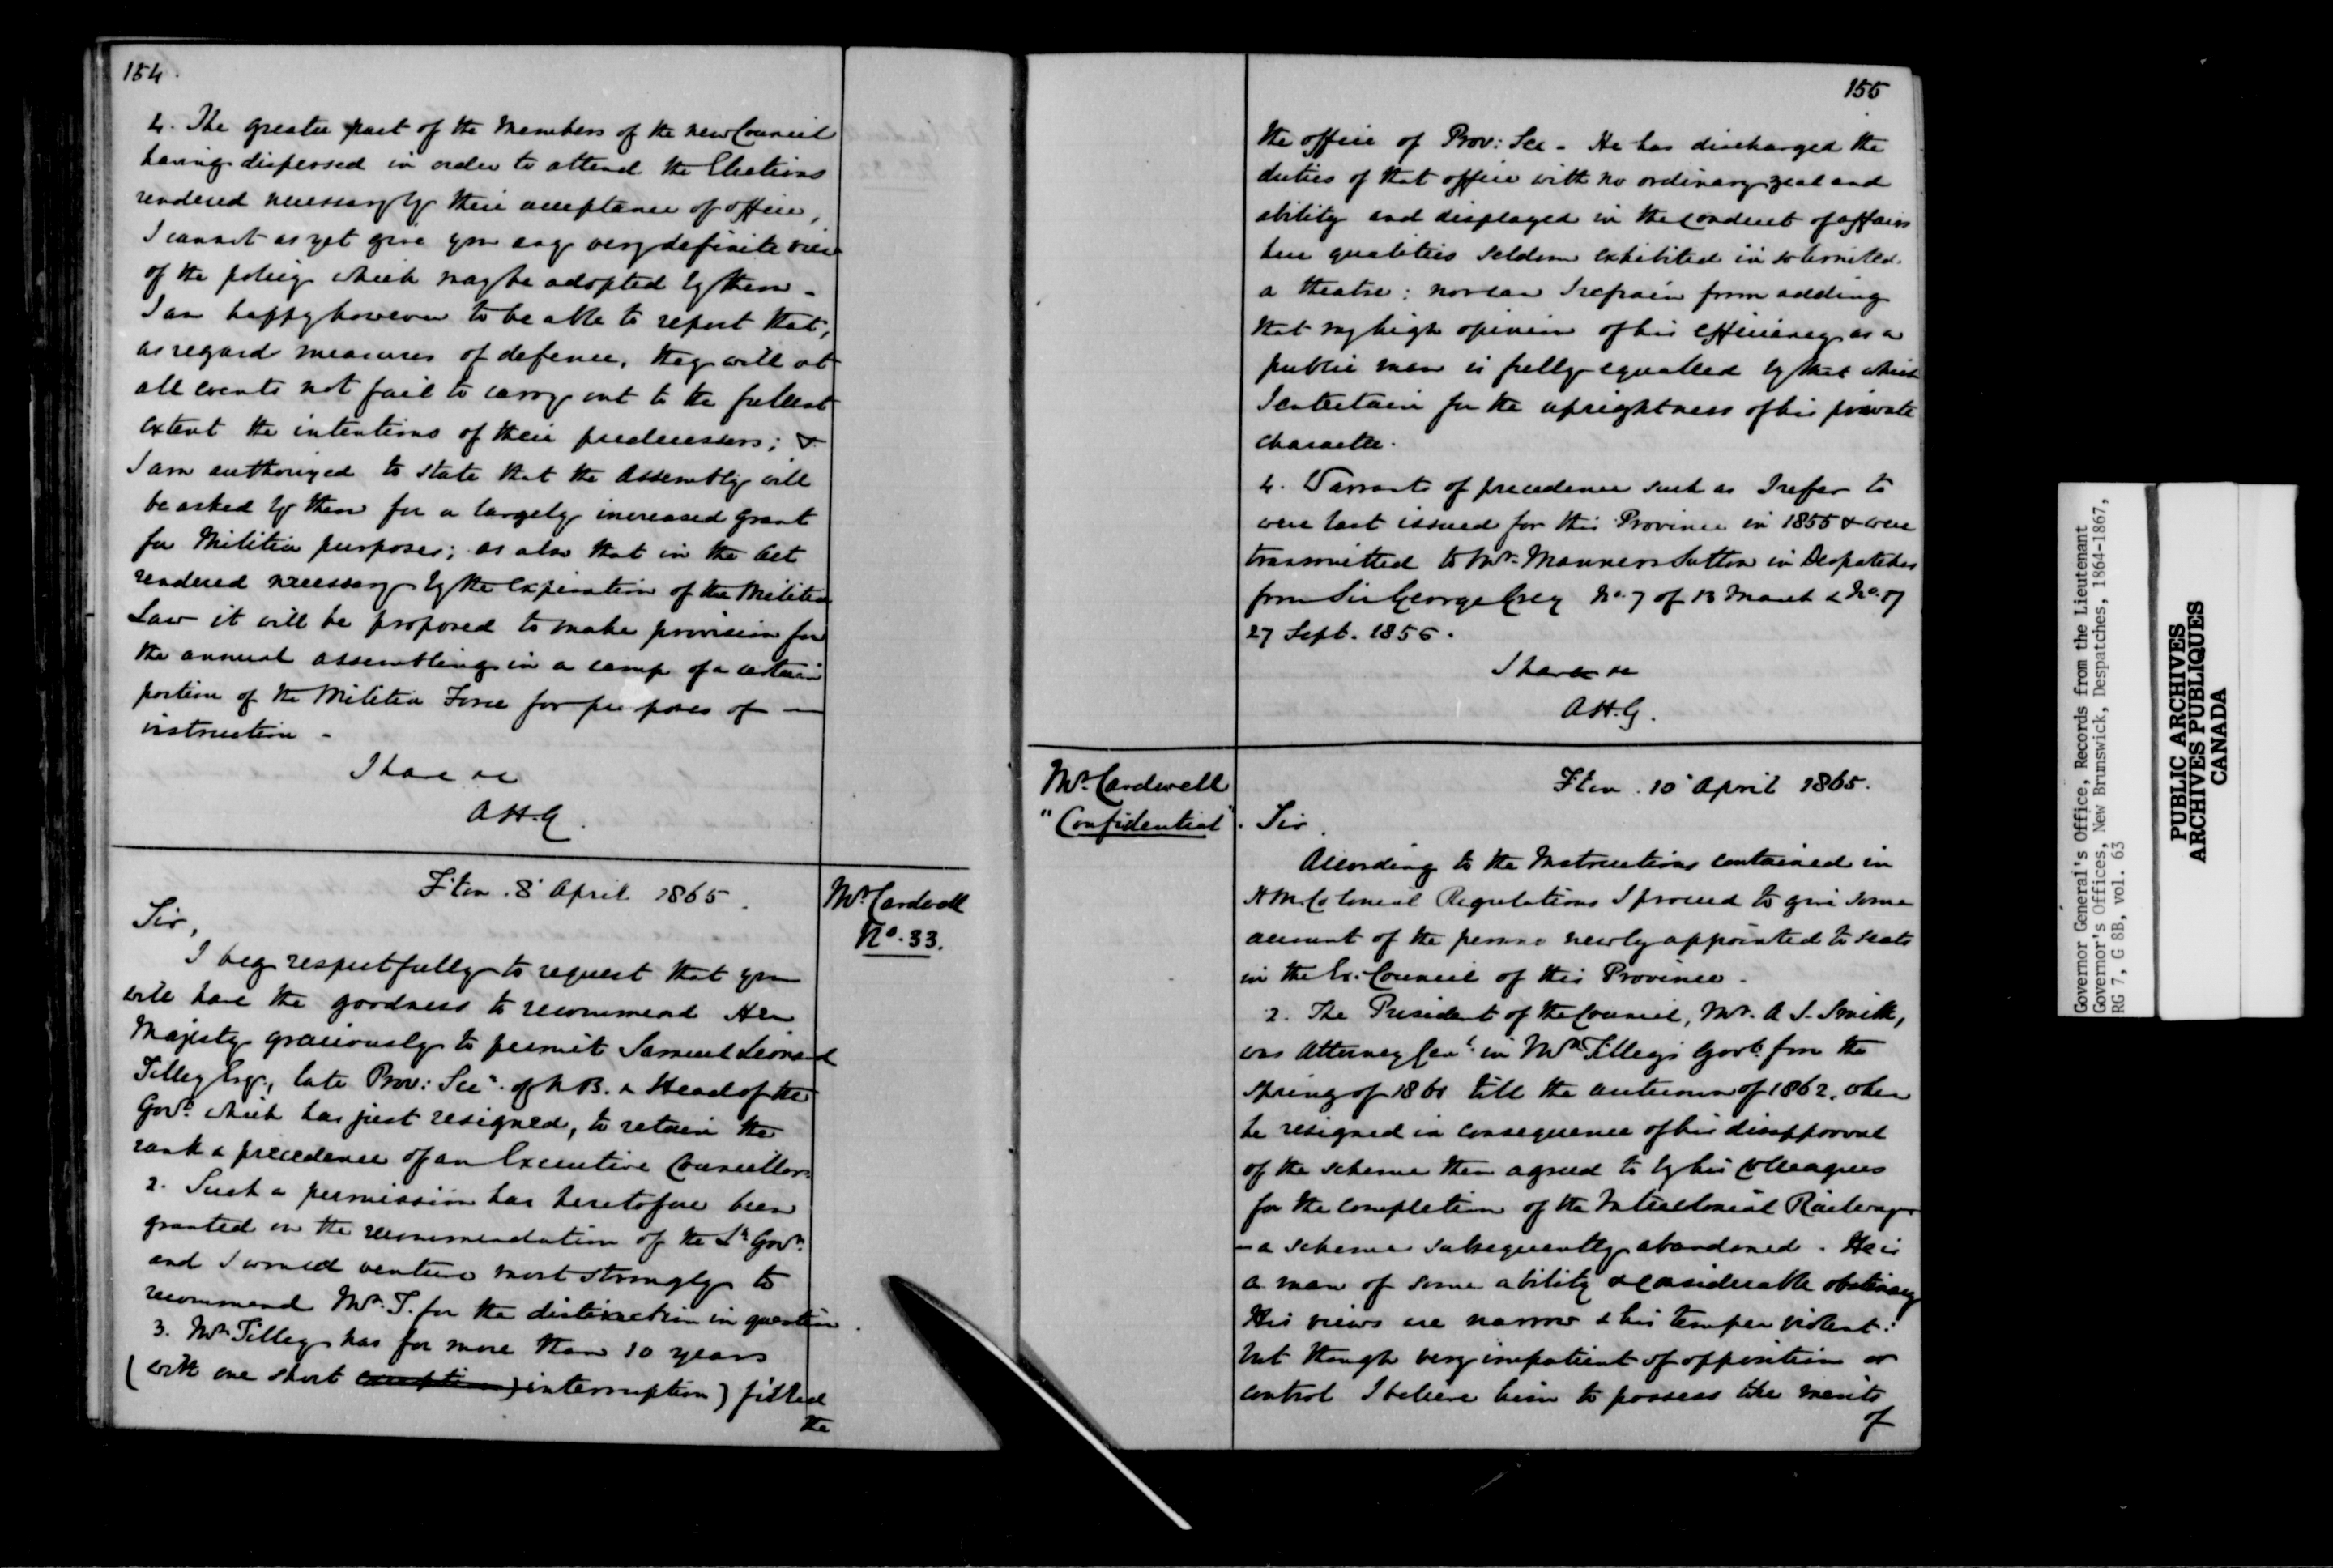 154.
4. The greater part of the Members of the new Council
having dispersed in order to attend the Elections
rendered necessary by their acceptance of office,
I cannot as yet give you any very definite view
of the policy which may be adopted by them -
I am happy however to be able to report that,
as regard measures of defence, they will at
all events not fail to carry out to the fullest
extent the intentions of their predecessors; &
I am authorized to state that the Assembly will
be asked by them for a largely increased grant
for Militia purposes; as also that in the Act
rendered necessary by the expiration of the Militia
Law it will be proposed to make provision for
the annual assembling in a camp of a certain
portion of the Militia Force for purposes of —
instruction -
I have &c
A H. G.
F'ton. 8 April 1865.
Mr. Cardwell
No. 33.
Sir,
I beg respectfully to request that you
will have the goodness to recommend Her
Majesty graciously to permit Samuel Leonard
Tilley Esq., late Prov: Secy. of N B. & Head of the
Govt. which has just resigned, to retain the
rank & precedence of an Executive Councillor.
2. Such a permission has heretofore been
granted on the recommendation of the Lt Govr.
and I would venture most strongly to
recommend Mr. T. for the distinction in question.
3. Mr. Tilley has for more than 10 years
(with one short exception) interruption) filled
the
155
the office of Prov: Sec - He has discharged the
duties of that office with no ordinary zeal and
ability and displayed in the conduct of affairs
here qualities seldom exhibited in so limited
a theatre: nor can I refrain from adding
that my high opinion of his efficiency as a
public man is fully equalled by that which
I entertain for the uprightness of his private
character.
4. Warrants of precedence such as I refer to
were last issued for this Province in 1855 & were
transmitted to Mr. Manners Sutton in Despatches
from Sir George Grey No. 7 of 13 March & No. 17
27 Sept. 1855.
I have &c
A H. G.
Mr. Cardwell
"Confidential".
F'ton. 10 April 1865.
Sir,
According to the Instructions contained in
H M. Colonial Regulations I proceed to give some
account of the persons newly appointed to seats
in the Ex. Council of this Province.
2. The President of the Council, Mr. A J. Smith,
was Attorney Genl. in Mr. Tilley's Govt. from the
spring of 1861 till the autumn of 1862, when
he resigned in consequence of his disapproval
of the scheme then agreed to by his Colleagues
for the completion of the Intercolonial Railway
- a scheme subsequently abandoned. He is
a man of some ability & considerable obstinacy
His views are narrow & his temper violent:
but though very impatient of opposition or
control I believe him to possess the merits
of
Governor General's Office, Records from the Lieutenant
Governor's Offices, New Brunswick, Despatches, 1864-1867,
RG 7, G 8B, vol. 63
PUBLIC ARCHIVES
ARCHIVES PUBLIQUES
CANADA